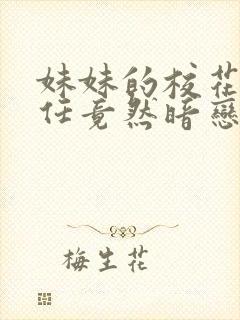 妹妹的校花
任竟然暗戀
梅生花